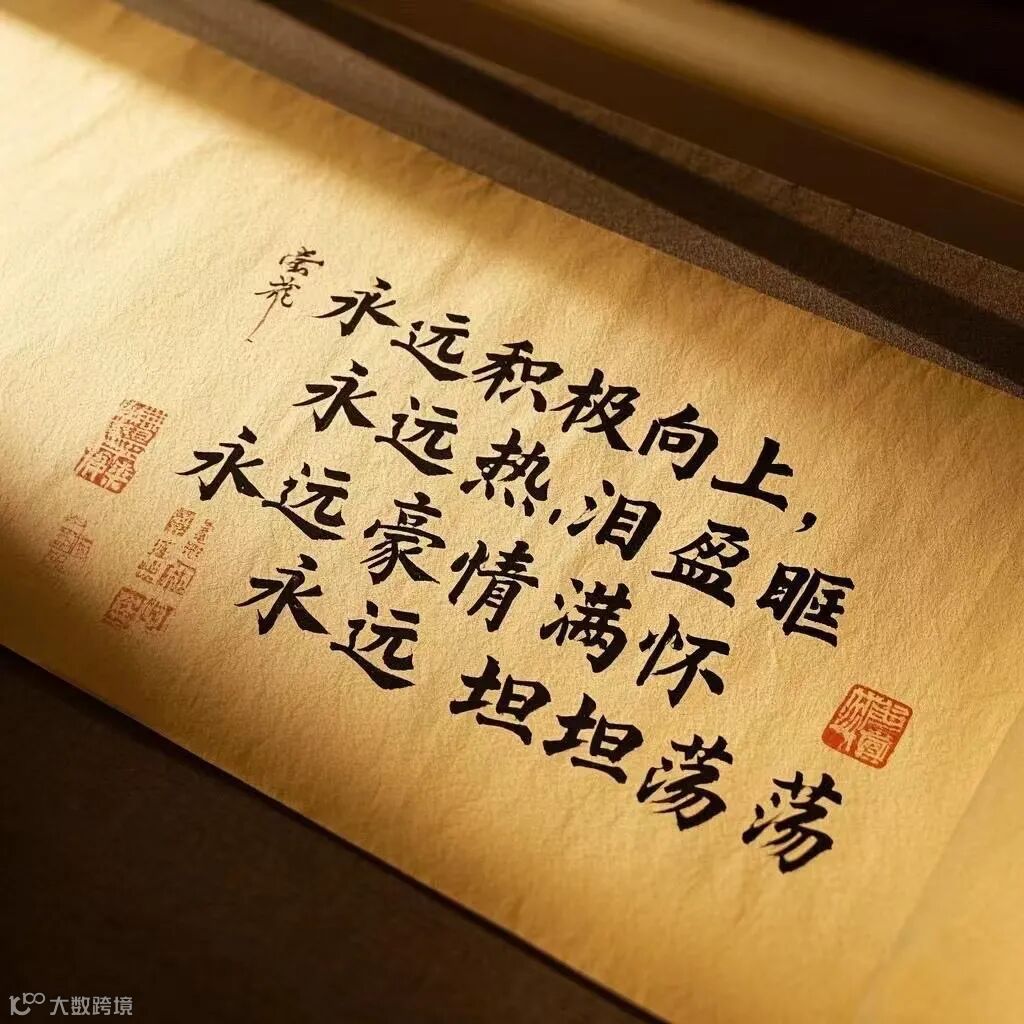 永远积极向上,
永远热泪盈眶
永远豪情满怀
永远坦坦荡荡
大数跨境